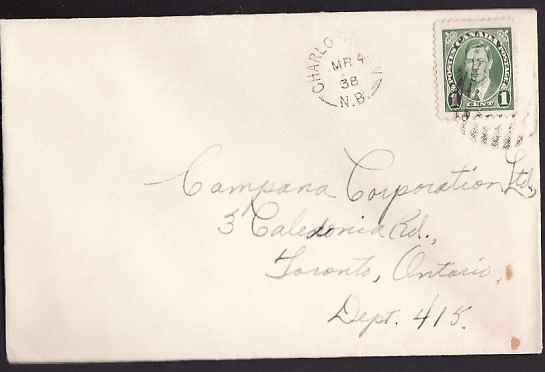 MR 4
38
N.B.
POSTES CANADA POSTAGE
1 CENT 1
Campana Corporation Ltd.,
3 Caledonia Rd.,
Toronto, Ontario,
Dept. 415.